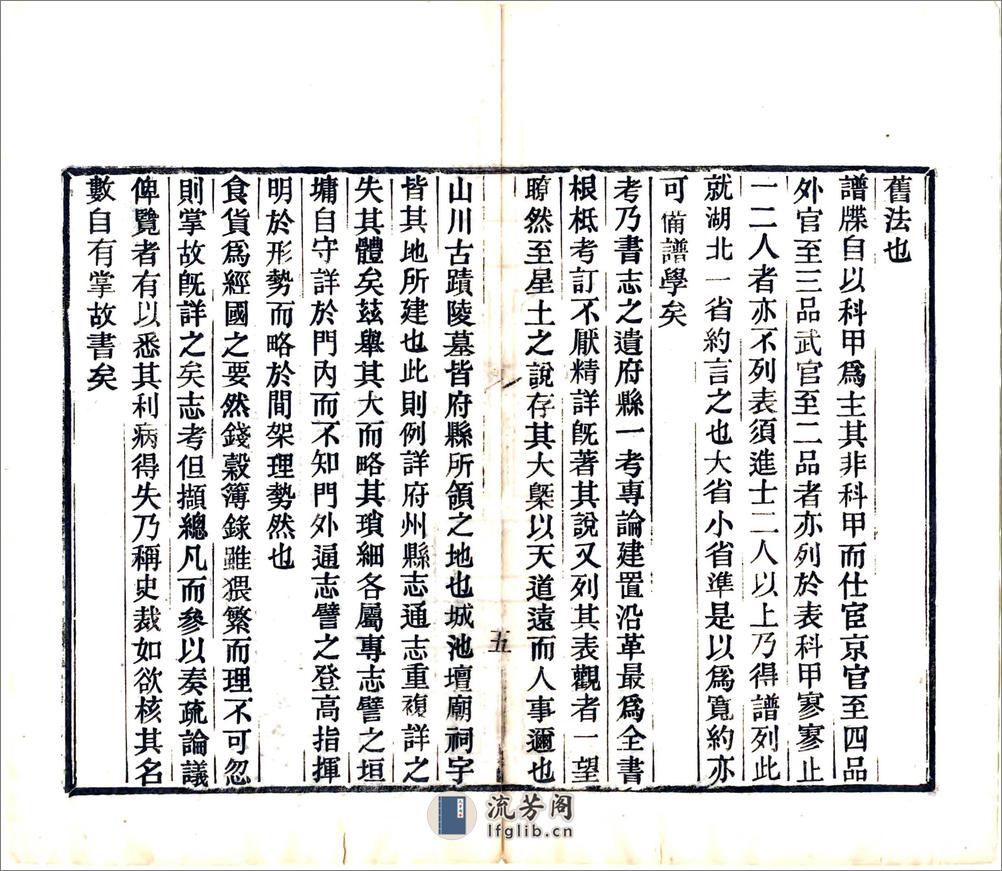 舊法也
譜牒自以科甲爲主其非科甲而仕宦京官至四品
外官至三品武官至二品者亦列於表科甲寥寥止
一二人者亦不列表須進士二人以上乃得譜列此
就湖北一省約言之也大省小省準是以爲寬約亦
可備譜學矣
考乃書志之遺府縣一考專論建置沿革最爲全書
根柢考訂不厭精詳旣著其說又列其表觀者一望
瞭然至星土之說存其大槩以天道遠而人事邇也
五
山川古蹟陵墓皆府縣所領之地也城池壇廟祠宇
皆其地所建也此則例詳府州縣志通志重複詳之
失其體矣茲舉其大而略其瑣細各屬專志譬之垣
墉自守詳於門內而不知門外通志譬之登高指揮
明於形勢而略於間架理勢然也
食貨爲經國之要然錢穀簿錄雖猥繁而理不可忽
則掌故旣詳之矣志考但擷總凡而參以奏疏論議
俾覽者有以悉其利病得失乃稱史裁如欲核其名
數自有掌故書矣
流芳阁
lfglib.cn